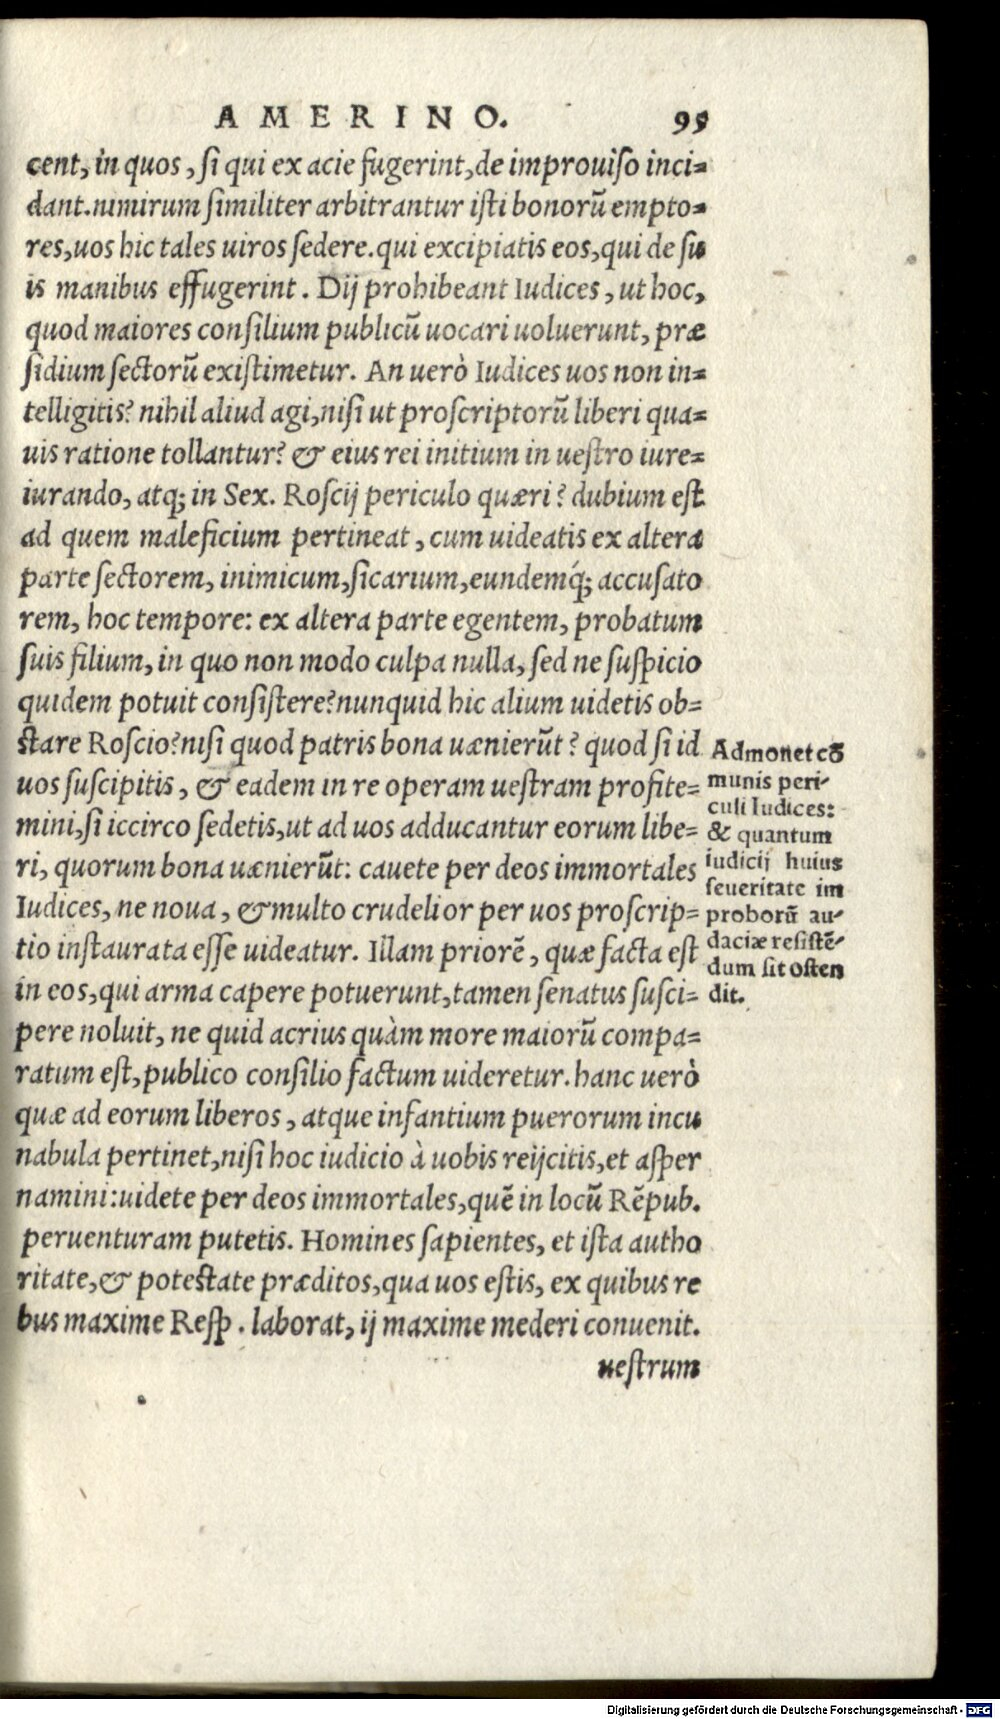 AMERINO. 95
cent, in quos, ſi qui ex acie fugerint, de improuiſo inci=
dant. nimirum ſimiliter arbitrantur iſti bonorũ empto=
res, uos hic tales uiros ſedere. qui excipiatis eos, qui de ſu
is manibus effugerint. Dij prohibeant Iudices, ut hoc,
quod maiores conſilium publicũ uocari uoluerunt, præ
ſidium ſectorũ exiſtimetur. An uerò Iudices uos non in=
telligitis? nihil aliud agi, niſi ut proſcriptorũ liberi qua=
uis ratione tollantur? & eius rei initium in ueſtro iure=
iurando, atq; in Sex. Roſcij periculo quæri? dubium eſt
ad quem maleficium pertineat, cum uideatis ex altera
parte ſectorem, inimicum, ſicarium, eundemq́; accuſato
rem, hoc tempore: ex altera parte egentem, probatum
ſuis filium, in quo non modo culpa nulla, ſed ne ſuſpicio
quidem potuit conſiſtere? nunquid hic alium uidetis ob=
ſtare Roſcio? niſi quod patris bona uænierũt? quod ſi id
uos ſuſcipitis, & eadem in re operam ueſtram profite=
mini, ſi iccirco ſedetis, ut ad uos adducantur eorum libe=
ri, quorum bona uænierũt: cauete per deos immortales
Iudices, ne noua, & multo crudelior per uos proſcrip=
tio inſtaurata eſſe uideatur. Illam priorẽ, quæ facta eſt
in eos, qui arma capere potuerunt, tamen ſenatus ſuſci=
pere noluit, ne quid acrius quàm more maiorũ compa=
ratum eſt, publico conſilio factum uideretur. hanc uerò
quæ ad eorum liberos, atque infantium puerorum incu
nabula pertinet, niſi hoc iudicio à uobis reijcitis, et aſper
namini: uidete per deos immortales, quẽ in locũ Rẽpub.
peruenturam putetis. Homines ſapientes, et iſta autho
ritate, & poteſtate præditos, qua uos eſtis, ex quibus re
bus maxime Reſp. laborat, ij maxime mederi conuenit.
ueſtrum
Admonet cõ
munis peri-
culi Iudices:
& quantum
iudicij huius
ſeueritate im
proborũ au-
daciæ reſiſtẽ-
dum ſit oſten
dit.
Digitalisierung gefördert durch die Deutsche Forschungsgemeinschaft - DFG